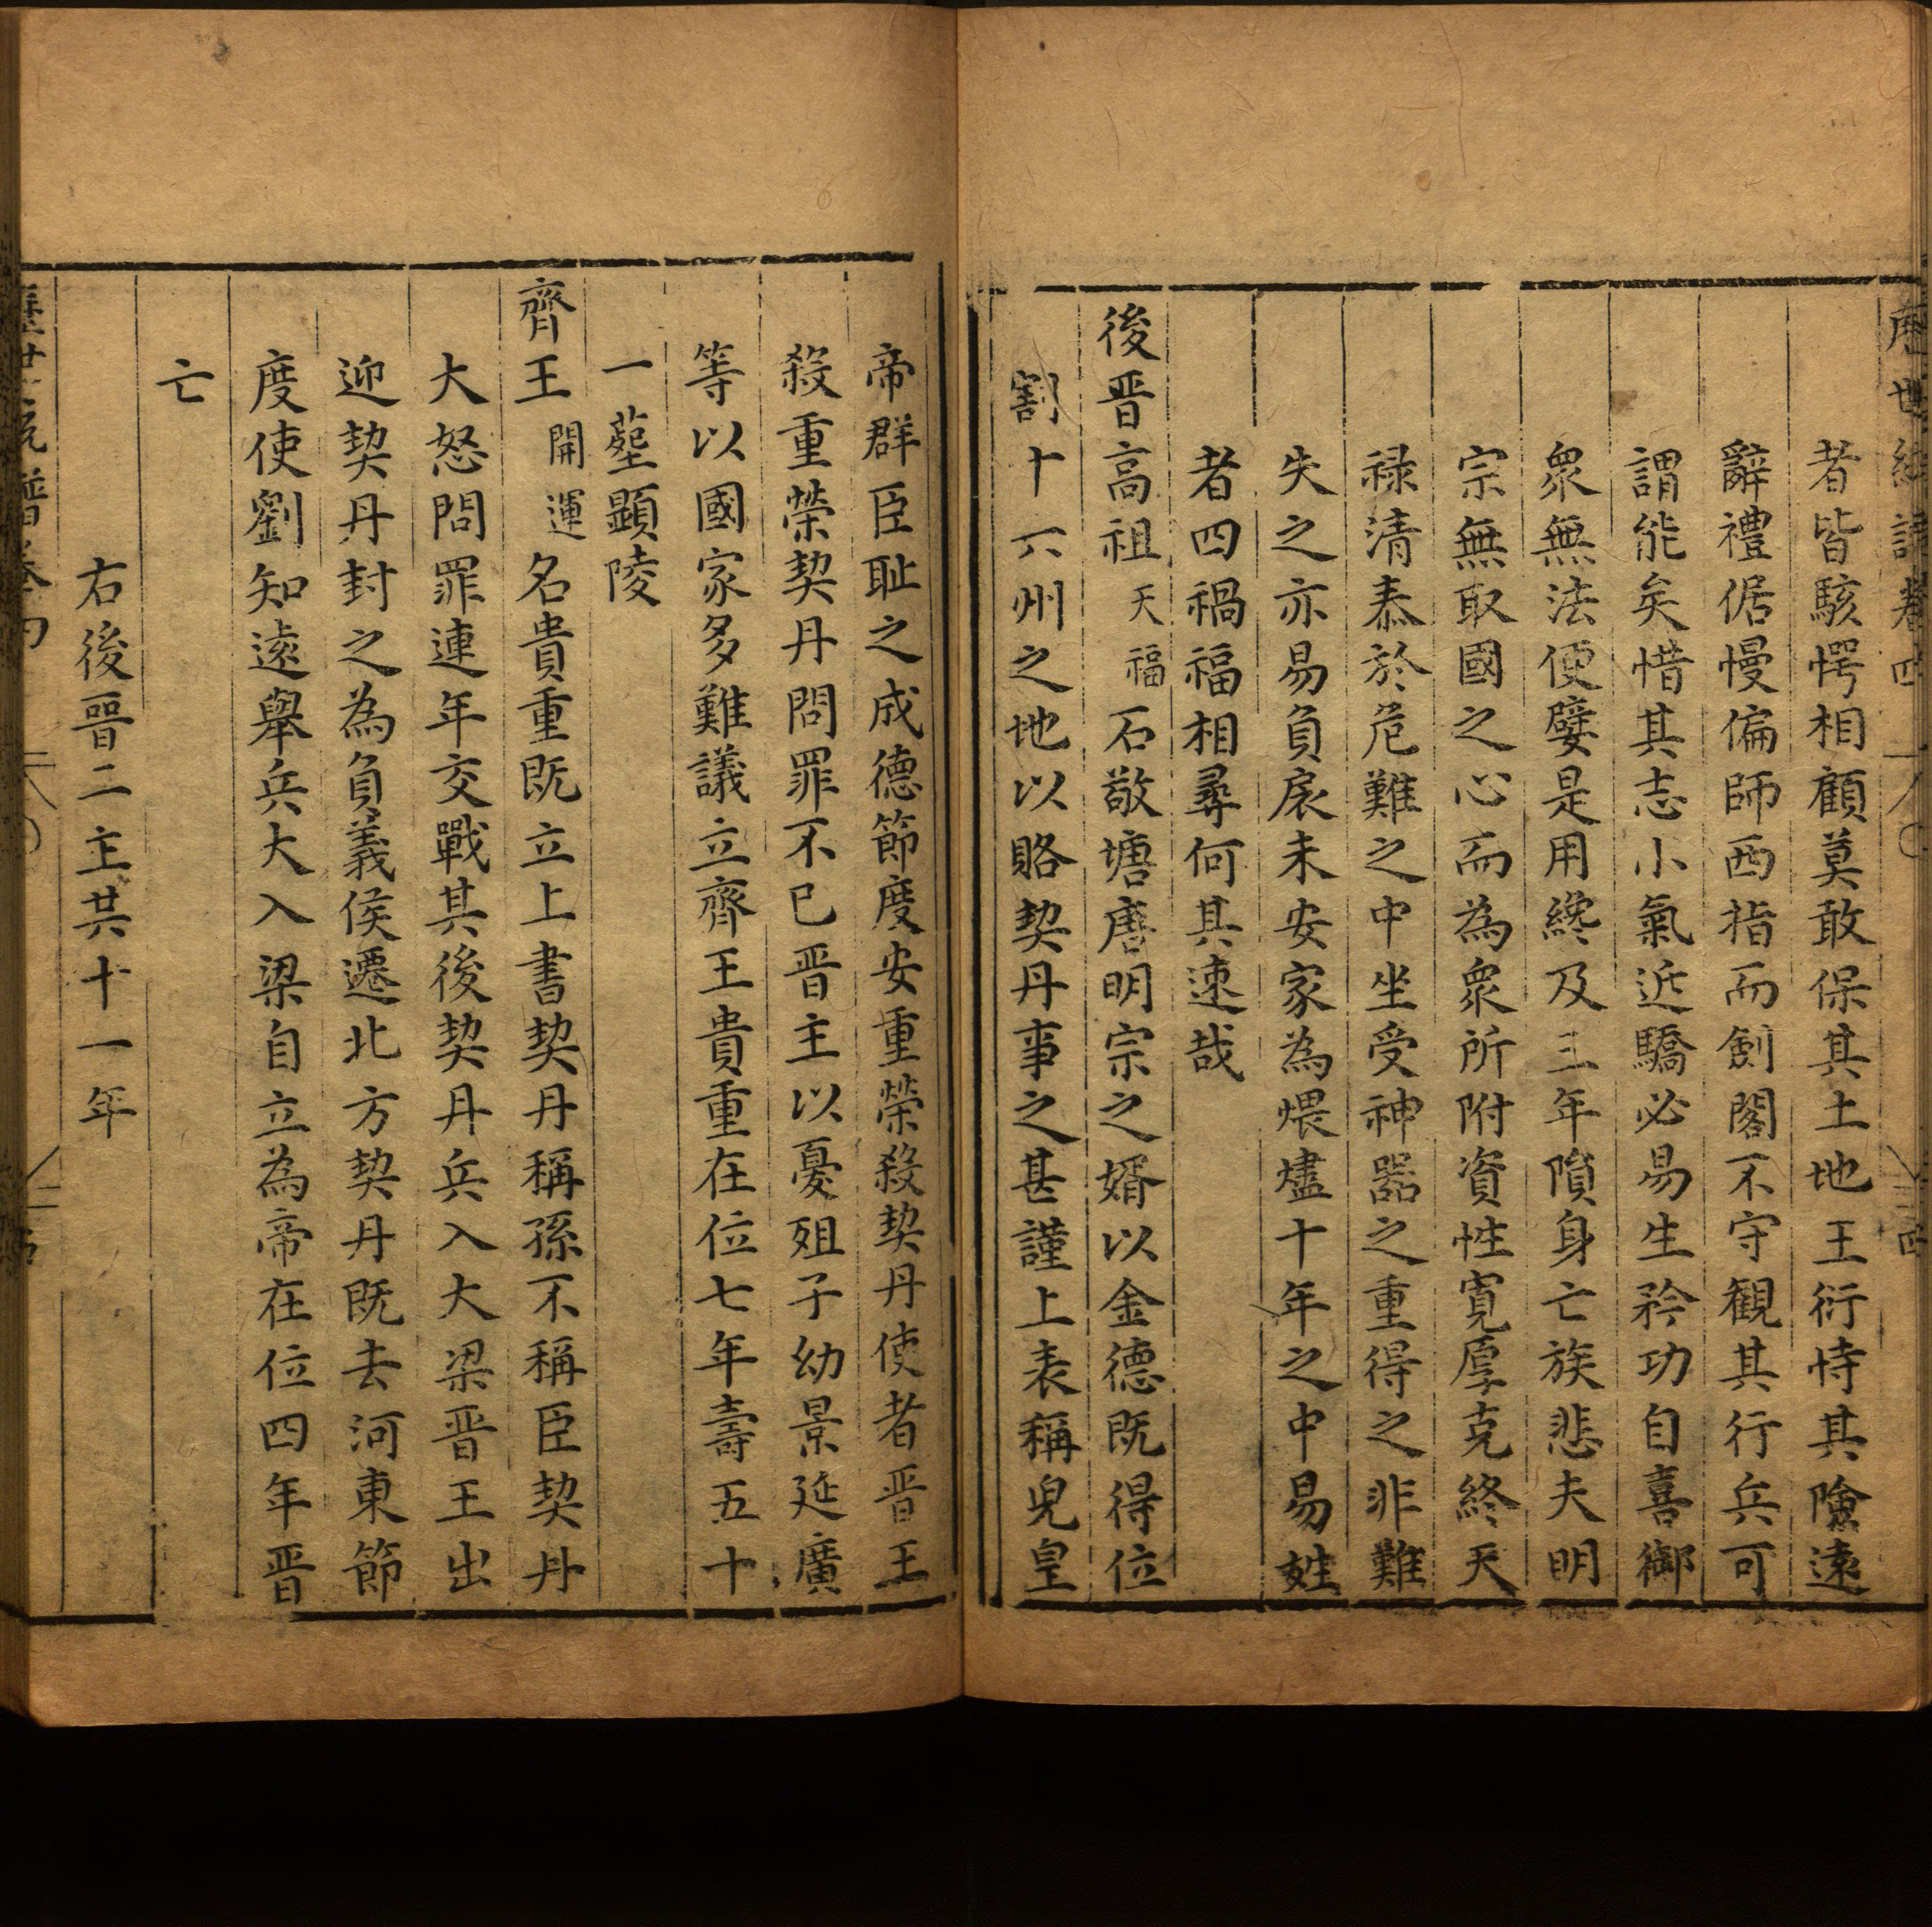 歷世統譜卷四 四
者皆駭愕相顧莫敢保其土地王衍恃其險遠
辭禮倨慢偏師西指而劍閣不守觀其行兵可
謂能矣惜其志小氣近驕必易生矜功自喜御
衆無法便嬖是用纔及三年隕身亡族悲夫明
宗無取國之心而為衆所附資性寛厚克終天
祿清泰於危難之中坐受神器之重得之非難
失之亦易負扆未安家為煨燼十年之中易姓
者四禍福相尋何其速哉
後晉高祖天福石敬塘唐明宗之婿以金德既得位
割十六州之地以賂契丹事之甚謹上表稱兒皇
帝群臣耻之成德節度安重榮殺契丹使者晋王
殺重榮契丹問罪不已晋主以憂殂子幼景延廣
等以國家多難議立齊王貴重在位七年壽五十
一塟顯陵
齊王開運名貴重既立上書契丹稱孫不稱臣契丹
大怒問罪連年交戰其後契丹兵入大梁晋王出
迎契丹封之為負義侯遷北方契丹既去河東節
度使劉知遠舉兵大入梁自立為帝在位四年晋
亡
右後晉二主共十一年
歷世統譜卷四 五